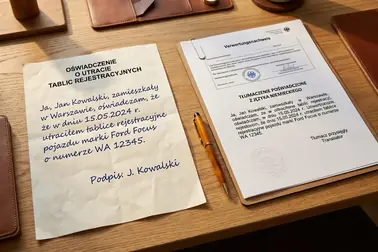 OŚWIADCZENIE
O UTRACIE
TABLIC REJESTRACYJNYCH
Ja, Jan Kowalski, zamieszkały
w Warszawie, oświadczam, że
że w dniu 15.05.2024 r.
utraciłem tablice rejestracyjne
pojazdu marki Ford Focus
o numerze WA 12345.
Podpis: J. Kowalski
Verwertungsnachweis
TŁUMACZENIE POŚWIADCZONE
Z JĘZYKA NIEMIECKIEGO
Ja, Jan Kowalski, zamieszkały w Warszawie,
że w dniu 15.05.2024 r.
rejestracyjne pojazdu marki Ford Focus o numerze
WA 12345.
Tłumacz przysięgły
Translator